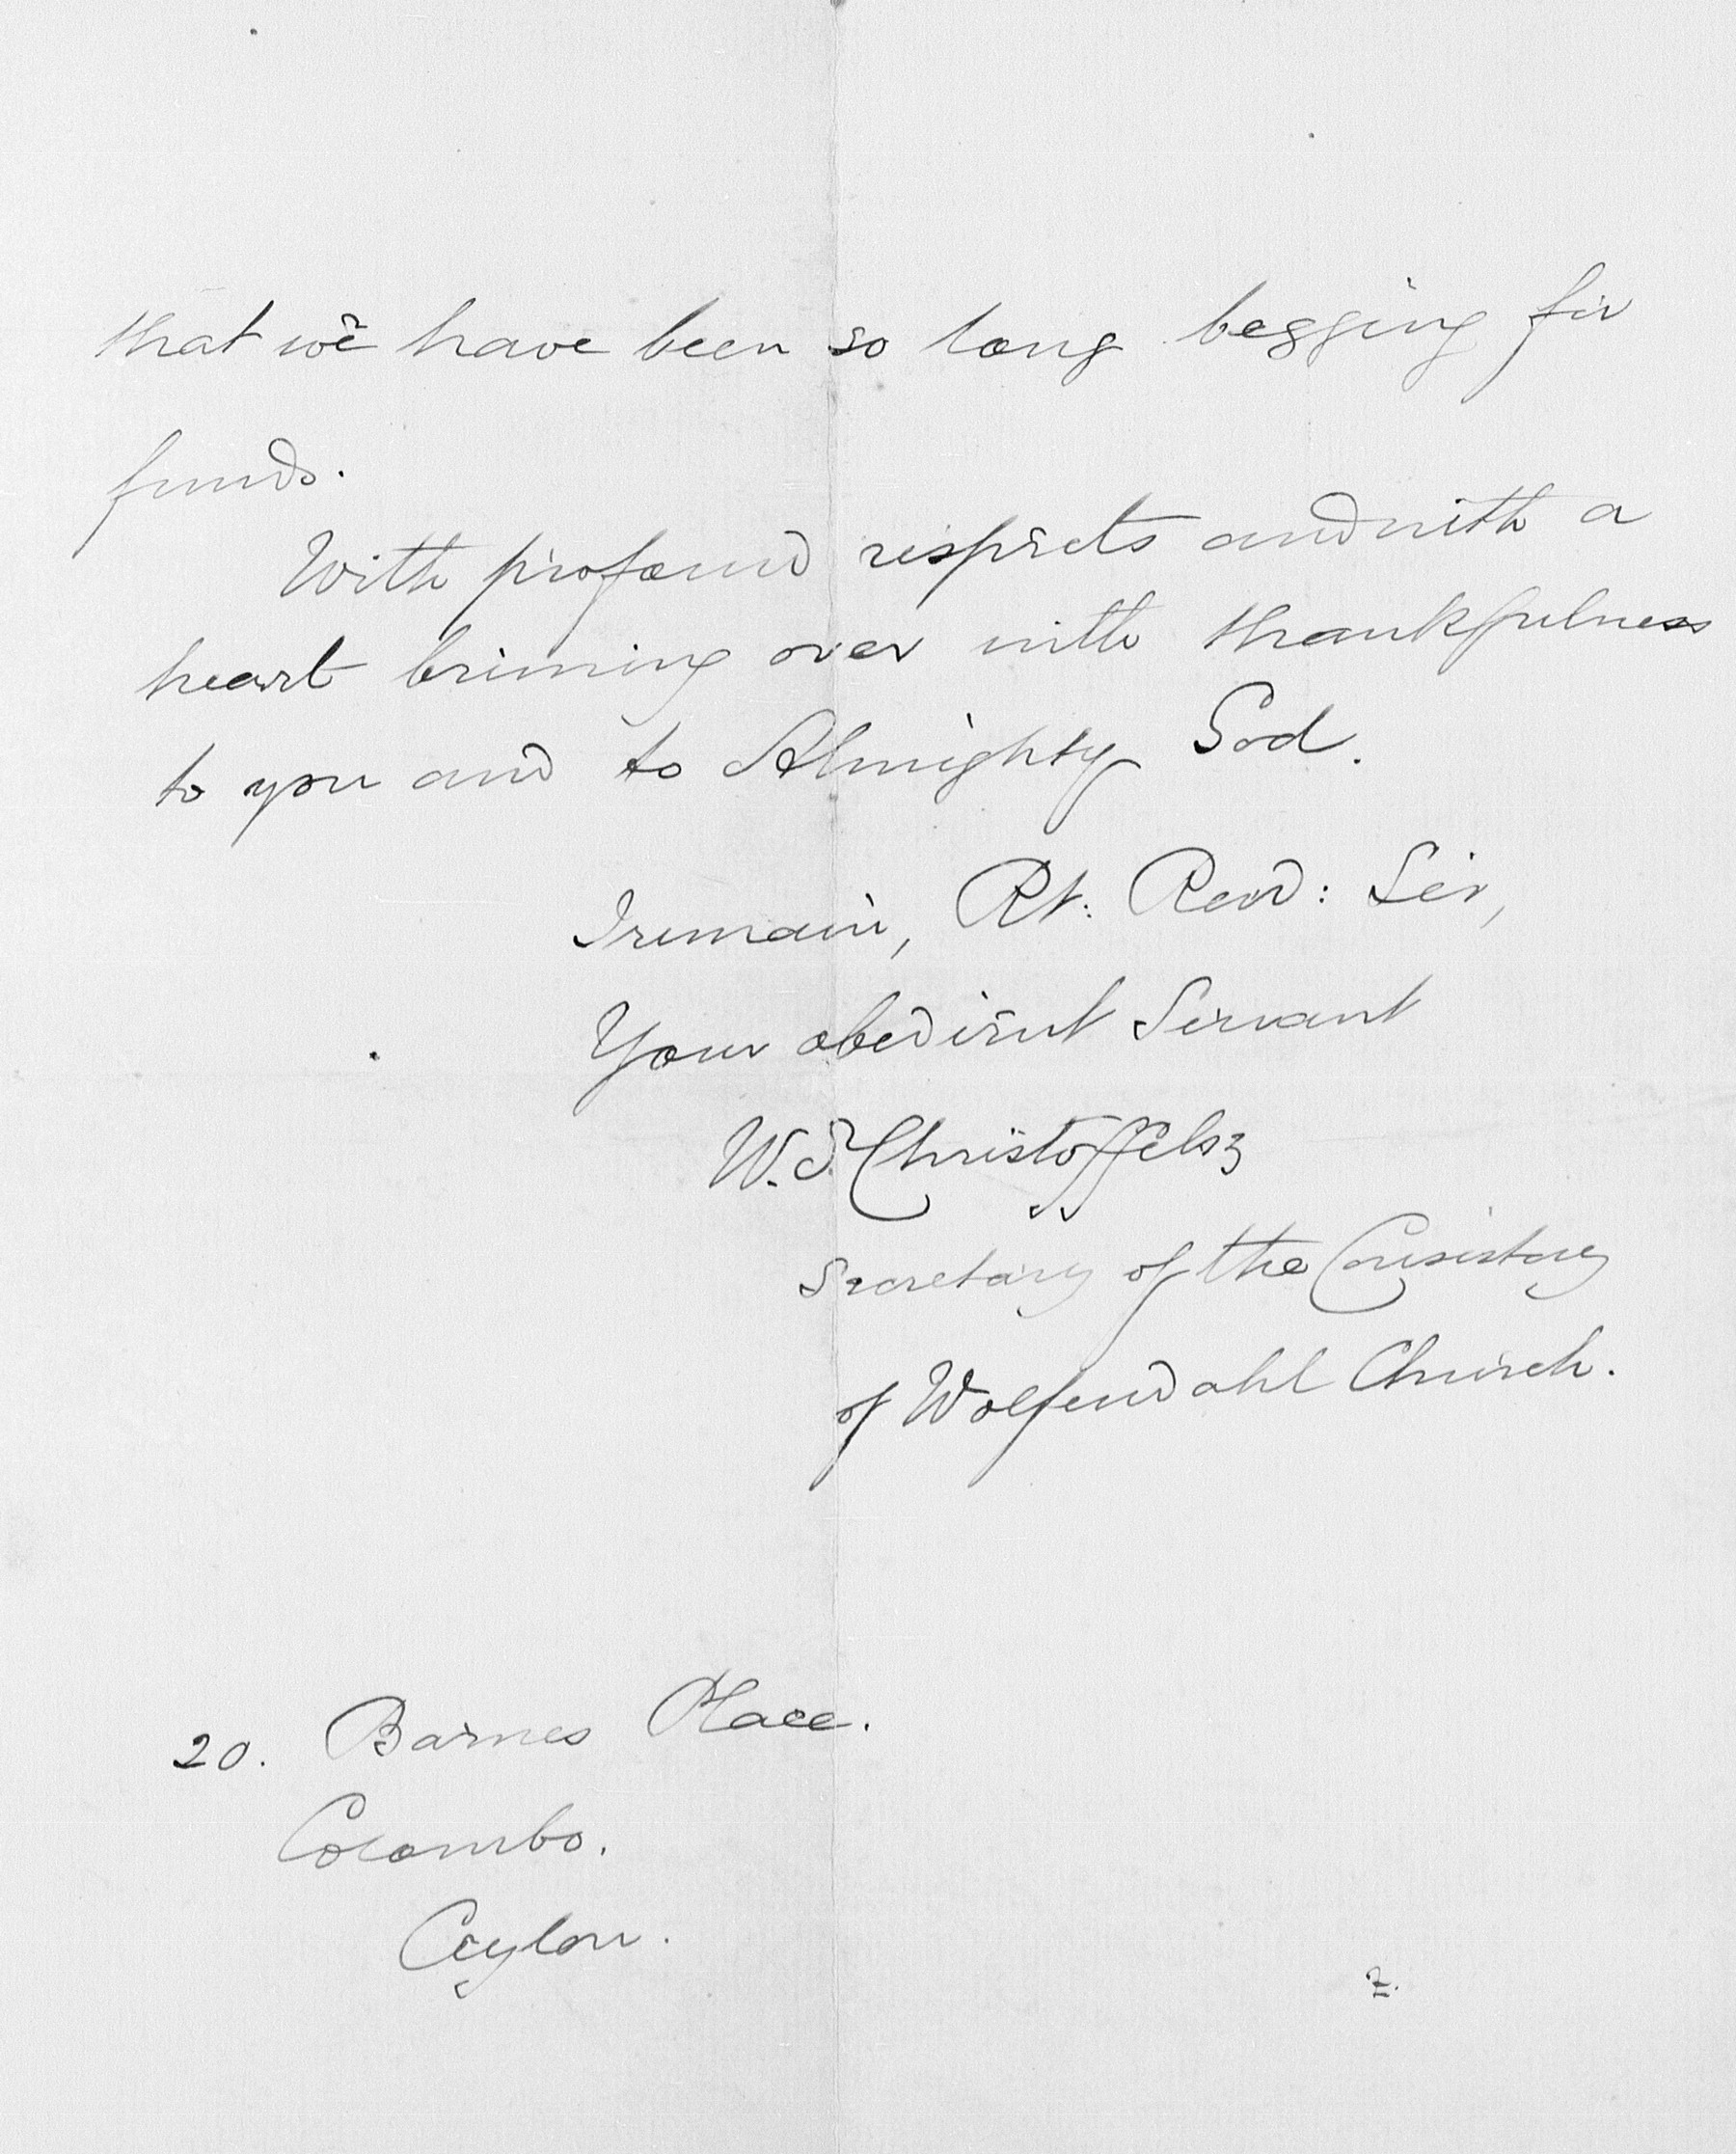 that we have been so long begging for
funds.
With profound respects and with a
heart briming over with thankfulness
to you and to Almighty God.
I remain, Rt: Revd: Sir,
Your obedient Servant
W. S. Christoffelsz
Secretary of the Consistory
of Wolfendahl Church.
20. Barnes Place.
Colombo.
Ceylon.